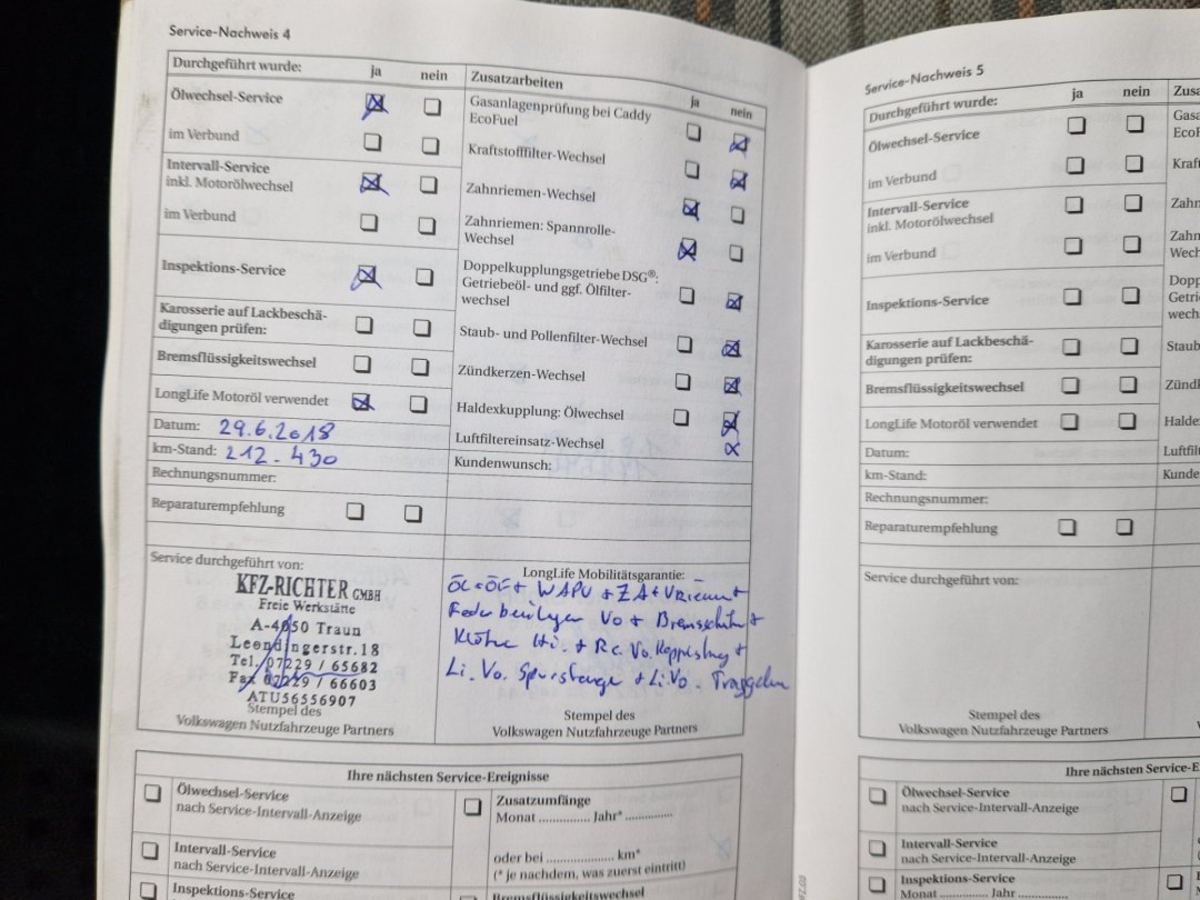 Service-Nachweis 4
Durchgeführt wurde: ja nein
Ölwechsel-Service
im Verbund
Intervall-Service
inkl. Motorölwechsel
im Verbund
Inspektions-Service
Karosserie auf Lackbeschä-
digungen prüfen:
Bremsflüssigkeitswechsel
LongLife Motoröl verwendet
Datum: 29.6.2018
km-Stand: 212.430
Rechnungsnummer:
Reparaturempfehlung
Zusatzarbeiten ja nein
Gasanlagenprüfung bei Caddy
EcoFuel
Kraftstofffilter-Wechsel
Zahnriemen-Wechsel
Zahnriemen: Spannrolle-
Wechsel
Doppelkupplungsgetriebe DSG®:
Getriebeöl- und ggf. Ölfilter-
wechsel
Staub- und Pollenfilter-Wechsel
Zündkerzen-Wechsel
Haldexkupplung: Ölwechsel
Luftfiltereinsatz-Wechsel
Kundenwunsch:
Service durchgeführt von:
KFZ-RICHTER GMBH
Freie Werkstätte
A-4050 Traun
Leondingerstr.18
Tel. 07229 / 65682
Fax 07229 / 66603
ATU56556907
Stempel des
Volkswagen Nutzfahrzeuge Partners
LongLife Mobilitätsgarantie:
ÖL+ÖF+ WAPU +
Vo +
Hi. + Re. Vo. +
Li. Vo. Spurstange + Li. Vo.
Stempel des
Volkswagen Nutzfahrzeuge Partners
Ihre nächsten Service-Ereignisse
Ölwechsel-Service
nach Service-Intervall-Anzeige
Intervall-Service
nach Service-Intervall-Anzeige
Inspektions-Service
Zusatzumfänge
Monat .............. Jahr* ..............
oder bei .................... km*
(* je nachdem, was zuerst eintritt)
Bremsflüssigkeitswechsel
Service-Nachweis 5
Durchgeführt wurde: ja nein
Ölwechsel-Service
im Verbund
Intervall-Service
inkl. Motorölwechsel
im Verbund
Inspektions-Service
Karosserie auf Lackbeschä-
digungen prüfen:
Bremsflüssigkeitswechsel
LongLife Motoröl verwendet
Datum:
km-Stand:
Rechnungsnummer:
Reparaturempfehlung
Zusa
Gasa
EcoF
Kraft
Zahn
Zahn
Wech
Dopp
Getri
wech
Staub
Zünd
Halde
Luftfil
Kunde
Service durchgeführt von:
Stempel des
Volkswagen Nutzfahrzeuge Partners
Ihre nächsten Service-E
Ölwechsel-Service
nach Service-Intervall-Anzeige
Intervall-Service
nach Service-Intervall-Anzeige
Inspektions-Service
Monat .............. Jahr ..............